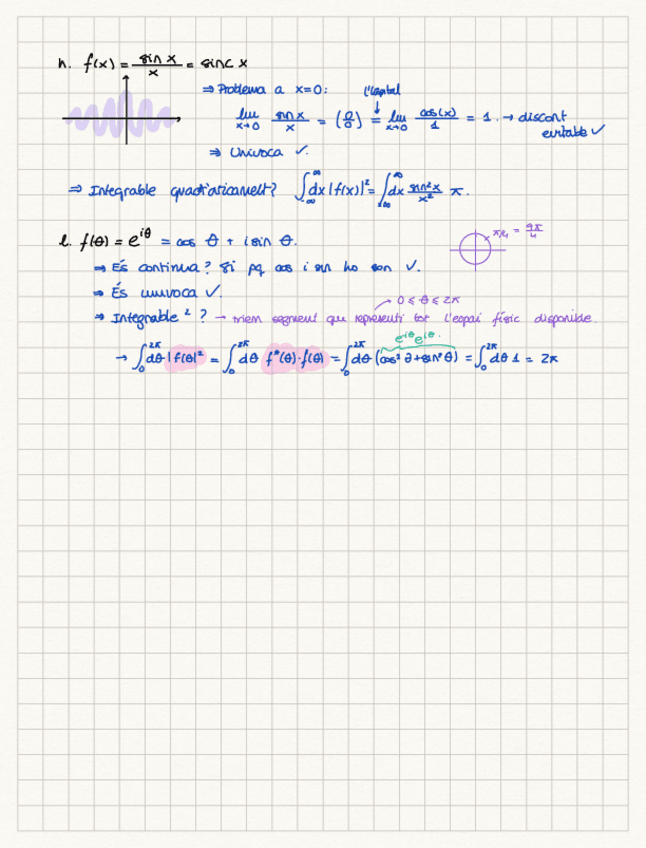 h. f(x) = sin x / x = sinc x
⇒ Problema a x=0:
l'Hopital
lim x→0 sin x / x = (0/0) = lim x→0 cos(x) / 1 = 1. → discont
evitable ✓
⇒ Unívoca ✓.
⇒ Integrable quadràticament? ∫_{-∞}^{∞} dx |f(x)|² = ∫_{-∞}^{∞} dx sin²x / x² π.
l. f(θ) = e^{iθ} = cos θ + i sin θ.
π/4 = 9π/4
⇒ És contínua? Sí pq cos i sin ho son ✓.
⇒ És unívoca ✓.
0 ≤ θ ≤ 2π
⇒ Integrable ² ? → triem segment que representi tot l'espai físic disponible.
e^{iθ} e^{iθ}.
→ ∫_0^{2π} dθ |f(θ)|² = ∫_0^{2π} dθ f*(θ)·f(θ) = ∫_0^{2π} dθ (cos² θ + sin² θ) = ∫_0^{2π} dθ 1 = 2π